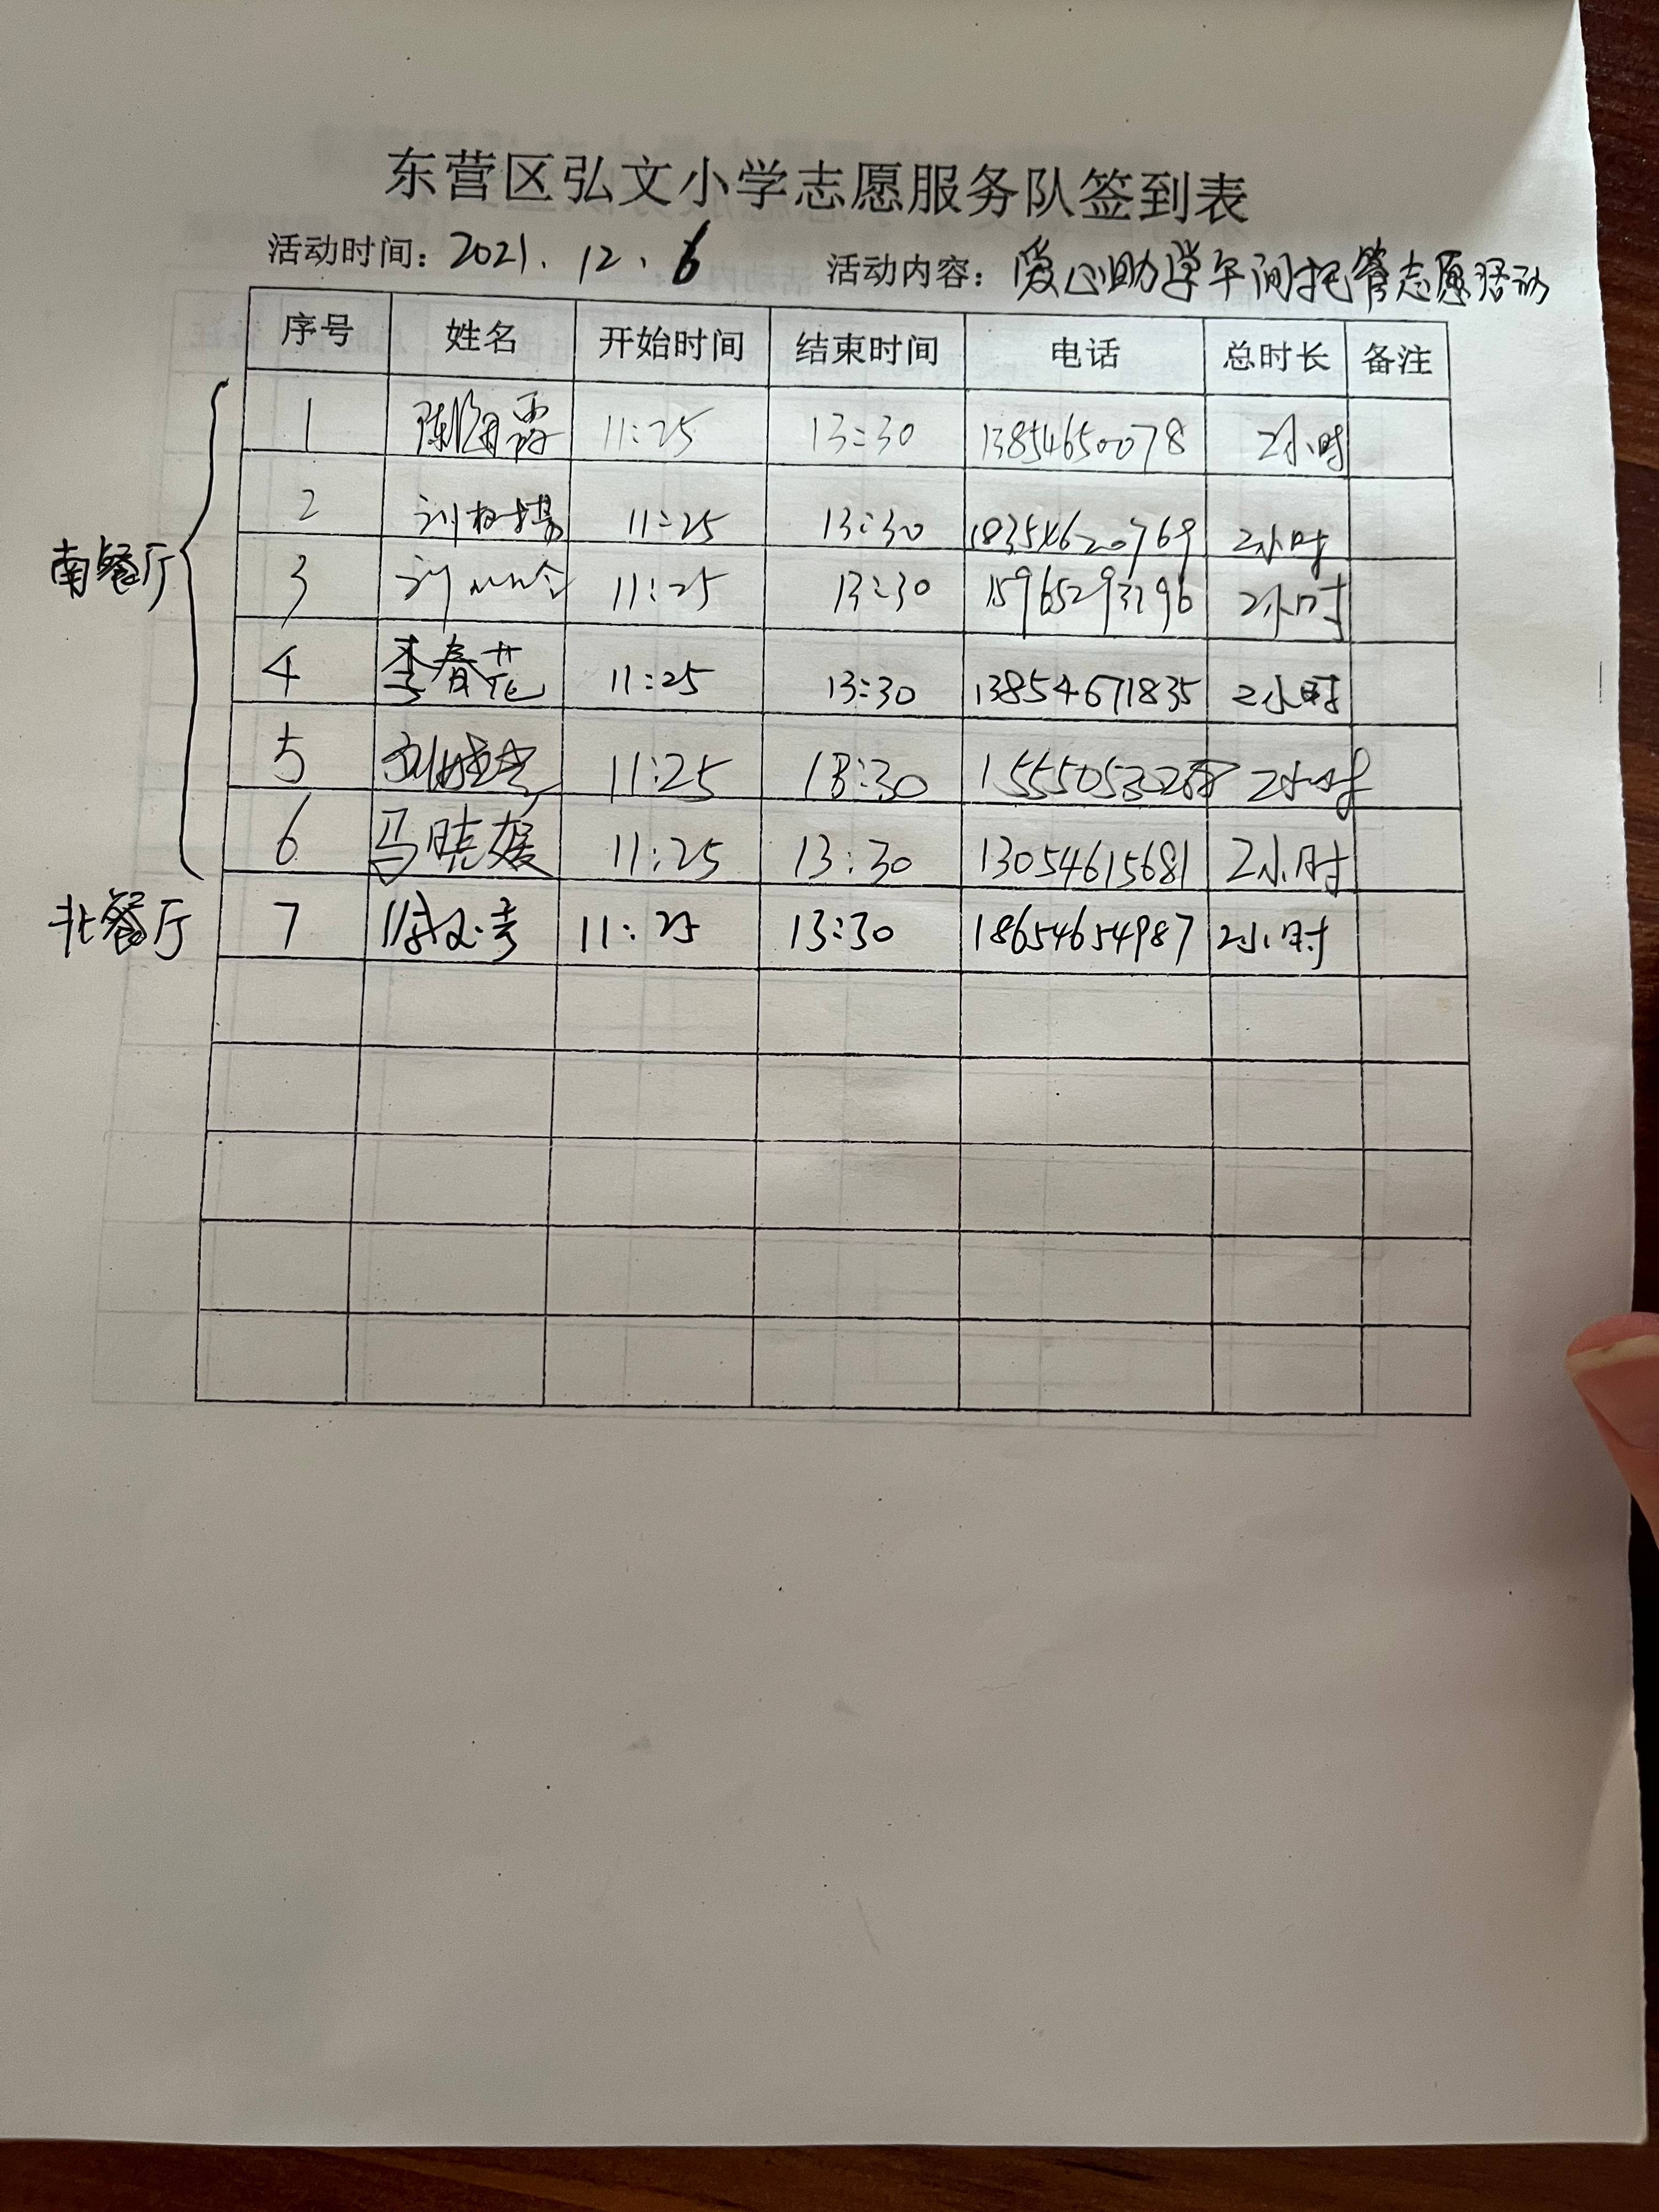 东营区弘文小学志愿服务队签到表
活动时间：2021.12.6 活动内容：爱心助学午间托管志愿活动
序号 姓名 开始时间 结束时间 电话 总时长 备注
南餐厅
1 陈海霞 11:25 13:30 13854650078 2小时
2 11:25 13:30 18354620769 2小时
3 11:25 13:30 15965293796 2小时
4 李春花 11:25 13:30 13854671835 2小时
5 11:25 13:30 2小时
6 马晓媛 11:25 13:30 13054615681 2小时
北餐厅
7 11:25 13:30 18654654987 2小时